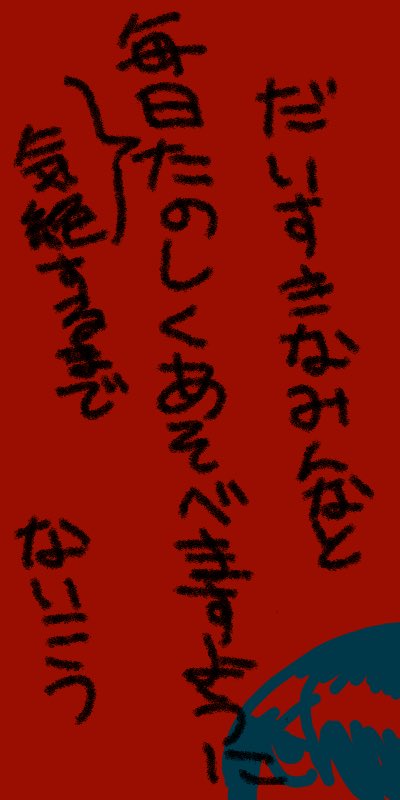 だいすきなみんなと
毎日たのしくあそべますように
気絶するまで
ないこう